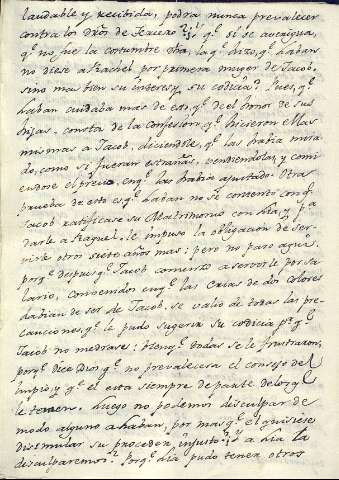 laudable y recibida, podrá nunca prevalecer
contra los dros de tercero? si se averigua,
q.e no fue la costumbre dha, la q.e hizo, q.e Laban
no diese a Rachel por primera muger de Jacob,
sino mas bien su interes y su codicia? Pues, q.e
Laban cuidaba mas de esto, q.e de el honor de sus
hijas, consta de la confession, q.e hicieron Mas
mismas a Jacob, diciendole, q.e las habia mira-
do, como si fueran estrañas, vendiendolas, y comi-
endose el precio, en q.e las habia ajustado. Otra
prueba de esto es q.e Laban no se contentó con q.e
Jacob ratificase su Matrimonio con Lia, y p.a
darle a Raquel, le impuso la obligacion de ser-
virle otros siete años mas: pero no paró aqui.
porq.e despues q.e Jacob comenzó a servirle por sa-
lario, convenidos en q.e las crias de dos colores
habian de ser de Jacob, se valió de todas las pre-
cauciones, q.e le pudo sugerir su codicia p.a q.e
Jacob no medrase: bien q.e todas se le frustraron,
porq.e dice Dios, q.e no prevalecerá el consejo del
impio, y q.e el está siempre de parte de los q.e
le temen. Luego no podemos disculpar de
modo alguno a Laban, por mas q.e el quisiese
disimular su proceder injusto: a Lia la
disculparemos? Porq.e Lia pudo tener otros